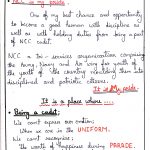 NCC is my pride.
One of my best chance and opportunity
to become a good human with discipline as
well as with holding duties from being a part
of NCC cadet.
NCC a tri-services organisation comprising
the army, navy and air wing for youth of
the youth of the country moulding them into
disciplined and patriotic citizens.
It is my pride.
It is a place where ....
Being a cadet:
We can't express our emotions
When we are in the UNIFORM.
We can't recognise
The worth of Happiness during PARADE.